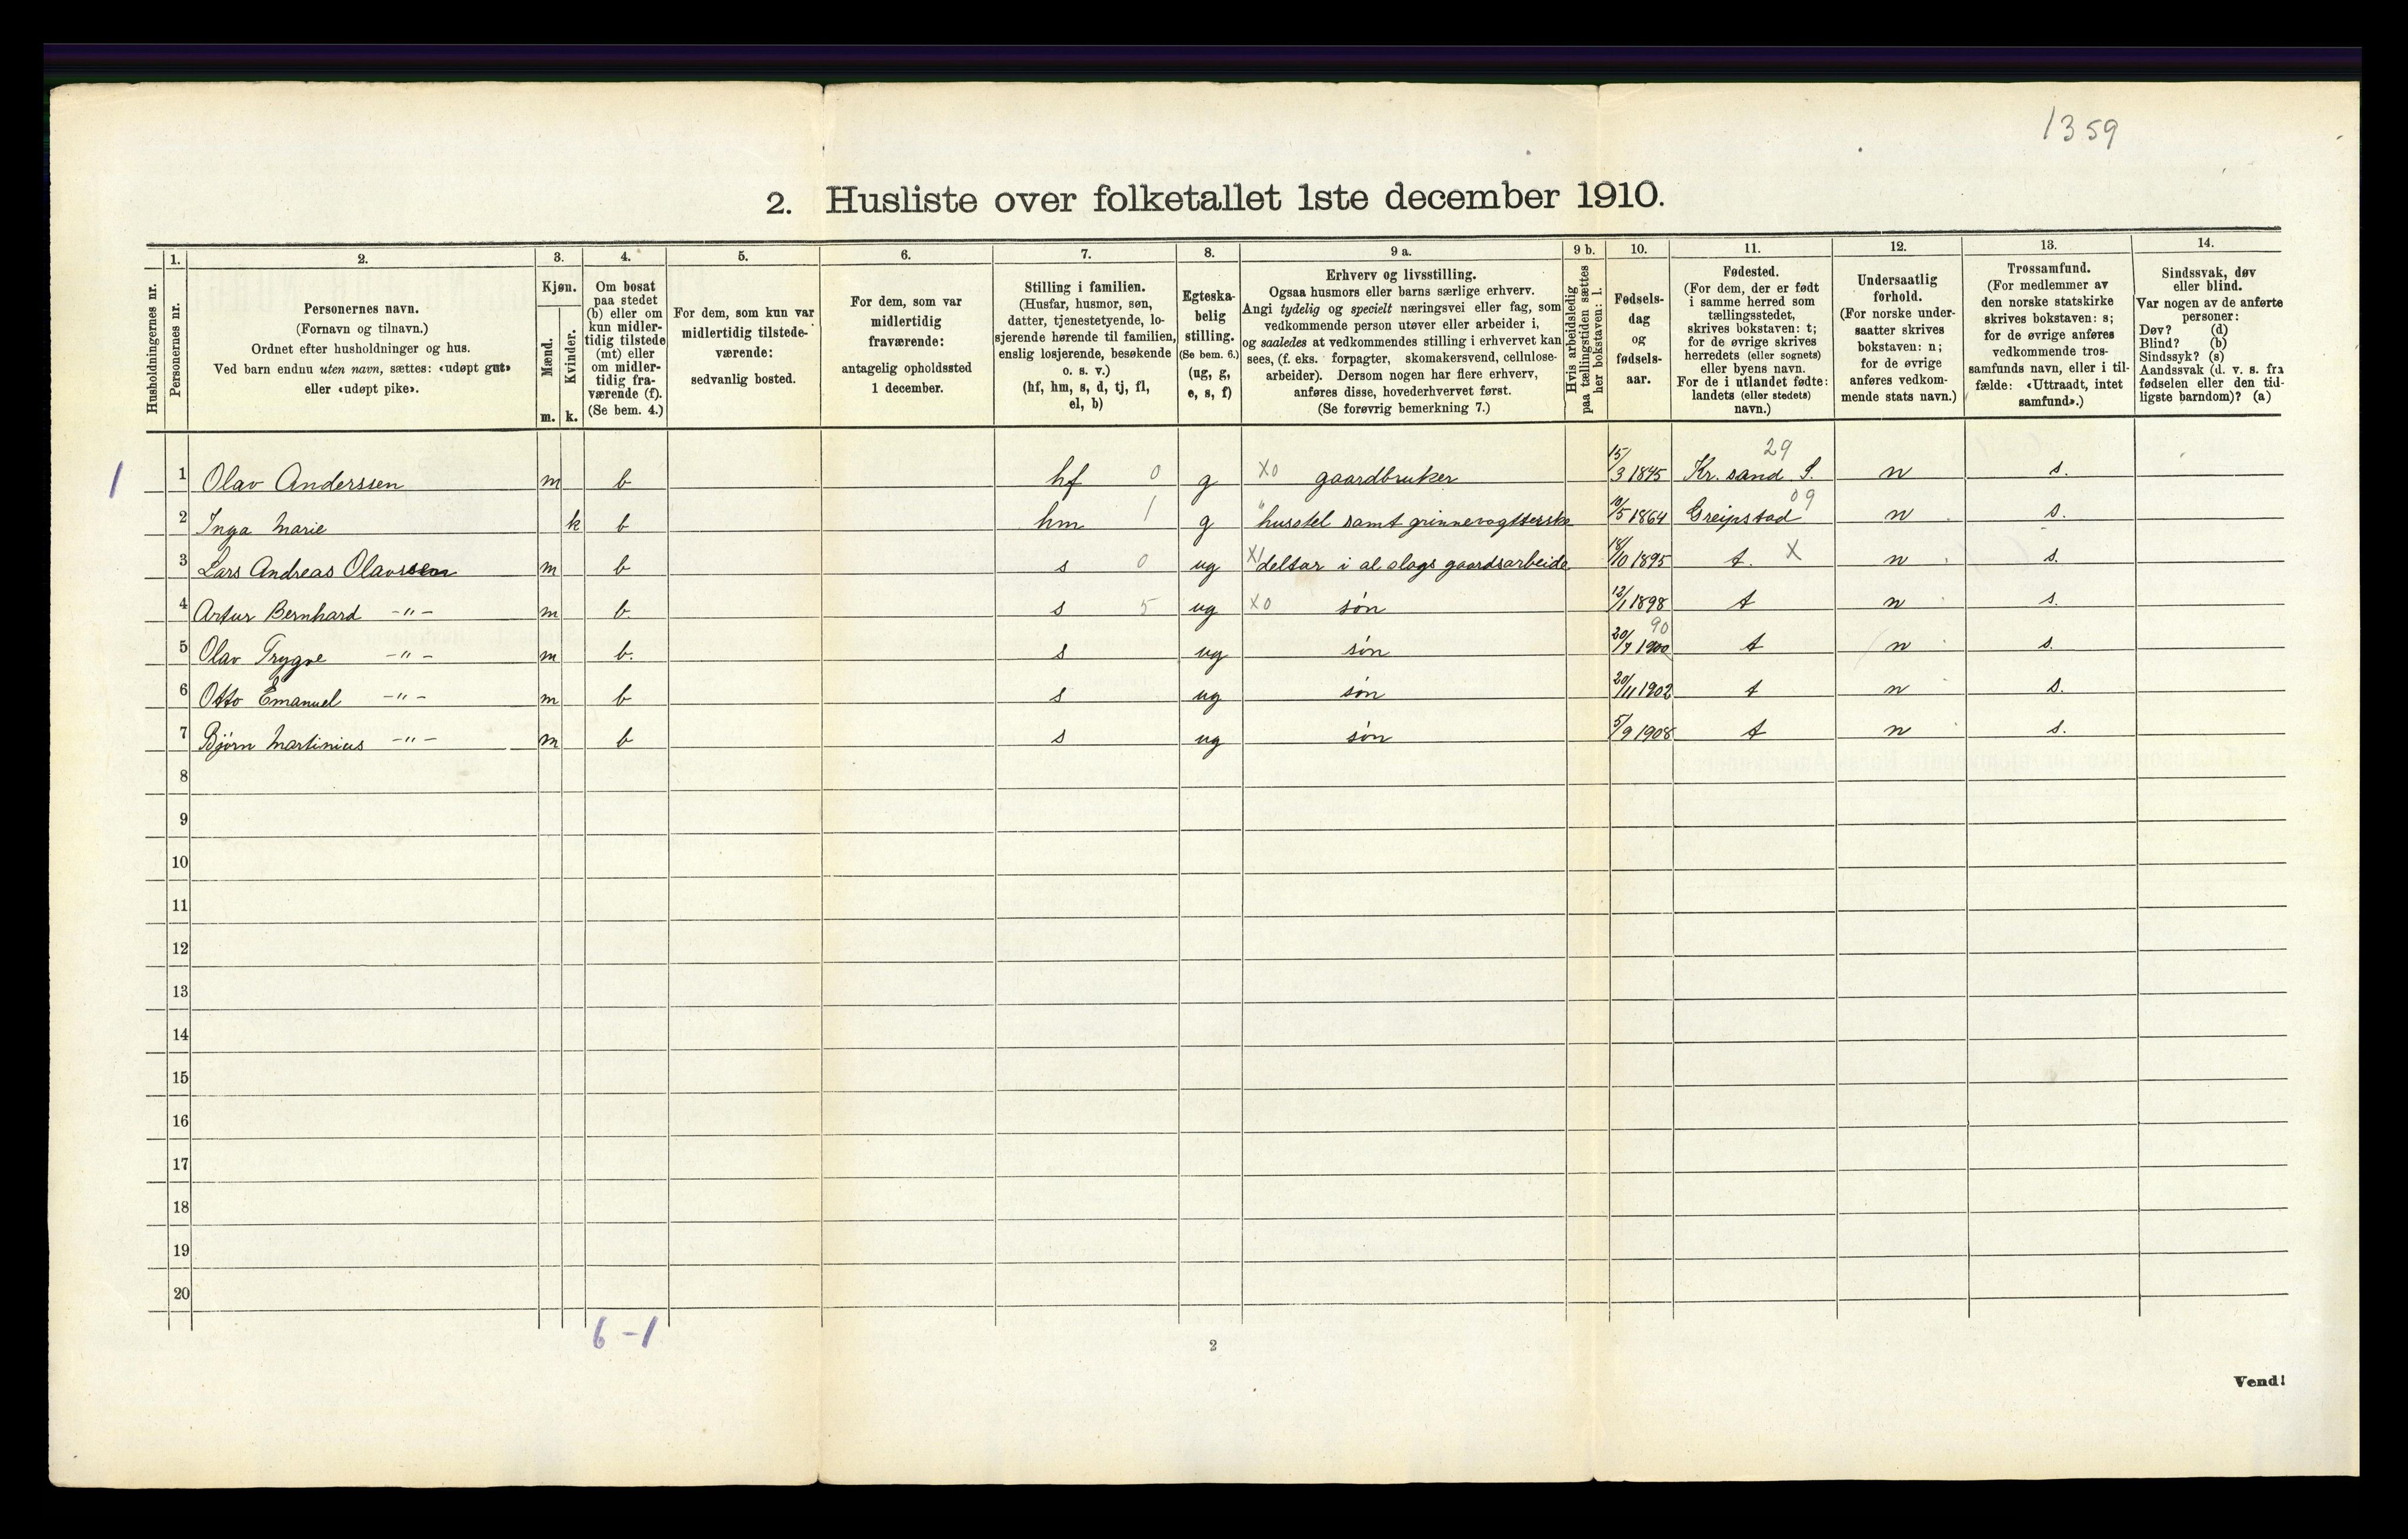 1359
2. Husliste over folketallet 1ste december 1910.
Husholdningernes nr.
1.
Personernes nr.
2.
Personernes navn.
(Fornavn og tilnavn.)
Ordnet efter husholdninger og hus.
Ved barn endnu uten navn, sættes: «udøpt gut»
eller «udøpt pike».
3.
Kjøn.
Mænd.
Kvinder.
m. k.
4.
Om bosat
paa stedet
(b) eller om
kun midler-
tidig tilstede
(mt) eller
om midler-
tidig fra-
værende (f).
(Se bem. 4.)
5.
For dem, som kun var
midlertidig tilstede-
værende:
sedvanlig bosted.
6.
For dem, som var
midlertidig
fraværende:
antagelig opholdssted
1 december.
7.
Stilling i familien.
(Husfar, husmor, søn,
datter, tjenestetyende, lo-
sjerende hørende til familien,
enslig losjerende, besøkende
o. s. v.)
(hf, hm, s, d, tj, fl,
el, b)
8.
Egteska-
belig
stilling.
(Se bem. 6.)
(ug, g,
e, s, f)
9 a.
Erhverv og livsstilling.
Ogsaa husmors eller barns særlige erhverv.
Angi tydelig og specielt næringsvei eller fag, som
vedkommende person utøver eller arbeider i,
og saaledes at vedkommendes stilling i erhvervet kan
sees, (f. eks. forpagter, skomakersvend, cellulose-
arbeider). Dersom nogen har flere erhverv,
anføres disse, hovederhvervet først.
(Se forøvrig bemerkning 7.)
9 b.
Hvis arbeidsledig
paa tællingstiden sættes
her bokstaven: l.
10.
Fødsels-
dag
og
fødsels-
aar.
11.
Fødested.
(For dem, der er født
i samme herred som
tællingsstedet,
skrives bokstaven: t;
for de øvrige skrives
herredets (eller sognets)
eller byens navn.
For de i utlandet fødte:
landets (eller stedets)
navn.)
12.
Undersaatlig
forhold.
(For norske under-
saatter skrives
bokstaven: n;
for de øvrige
anføres vedkom-
mende stats navn.)
13.
Trossamfund.
(For medlemmer av
den norske statskirke
skrives bokstaven: s;
for de øvrige anføres
vedkommende tros-
samfunds navn, eller i til-
fælde: «Uttraadt, intet
samfund».)
14.
Sindssvak, døv
eller blind.
Var nogen av de anførte
personer:
Døv? (d)
Blind? (b)
Sindssyk? (s)
Aandssvak (d. v. s. fra
fødselen eller den tid-
ligste barndom)? (a)
29
1 1 Olav Anderssen m b hf 0 g X0 gaardbruker 15/3 1845 Kr. sand S. n s.
09
2 Inga Marie k b hm 1 g " husstel samt grinnevogtterske 10/5 1864 Greipstad n s.
3 Lars Andreas Olavssen m b s 0 ug X1 deltar i al slags gaardsarbeide 18/10 1895 t. X n s.
4 Artur Bernhard -"- m b. s 5 ug X0 søn 12/1 1898 t n s.
90
5 Olav Trygve -"- m b. s ug søn 20/7 1900 t n s.
6 Otto Emanuel -"- m b s ug søn 20/11 1902 t n s.
7 Bjørn Martinius -"- m b s ug søn 5/9 1908 t n s.
8
9
10
11
12
13
14
15
16
17
18
19
20
6 - 1
2
Vend!